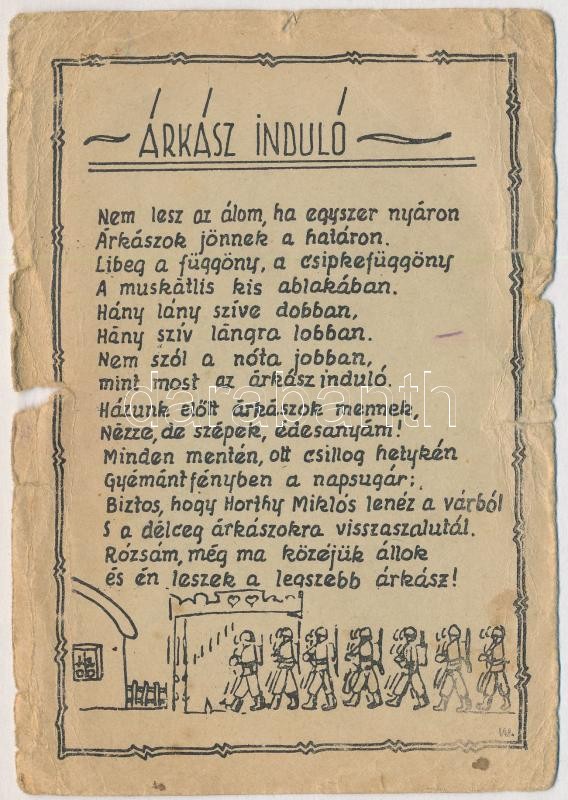 ÁRKÁSZ INDULÓ
Nem lesz az álom, ha egyszer nyáron
Árkászok jönnek a határon.
Libeg a függöny, a csipkefüggöny
A muskátlis kis ablakában.
Hány lány szíve dobban,
Hány szív lángra lobban.
Nem szól a nóta jobban,
mint most az árkász induló.
darabanth
Házunk előtt árkászok mennek,
Nézze, de szépek, édesanyám!
Minden mentén, ott csillog hetykén
Gyémántfényben a napsugár;
Biztos, hogy Horthy Miklós lenéz a várból
S a délceg árkászokra visszaszalutál.
Rózsám, még ma közéjük állok
és én leszek a legszebb árkász!